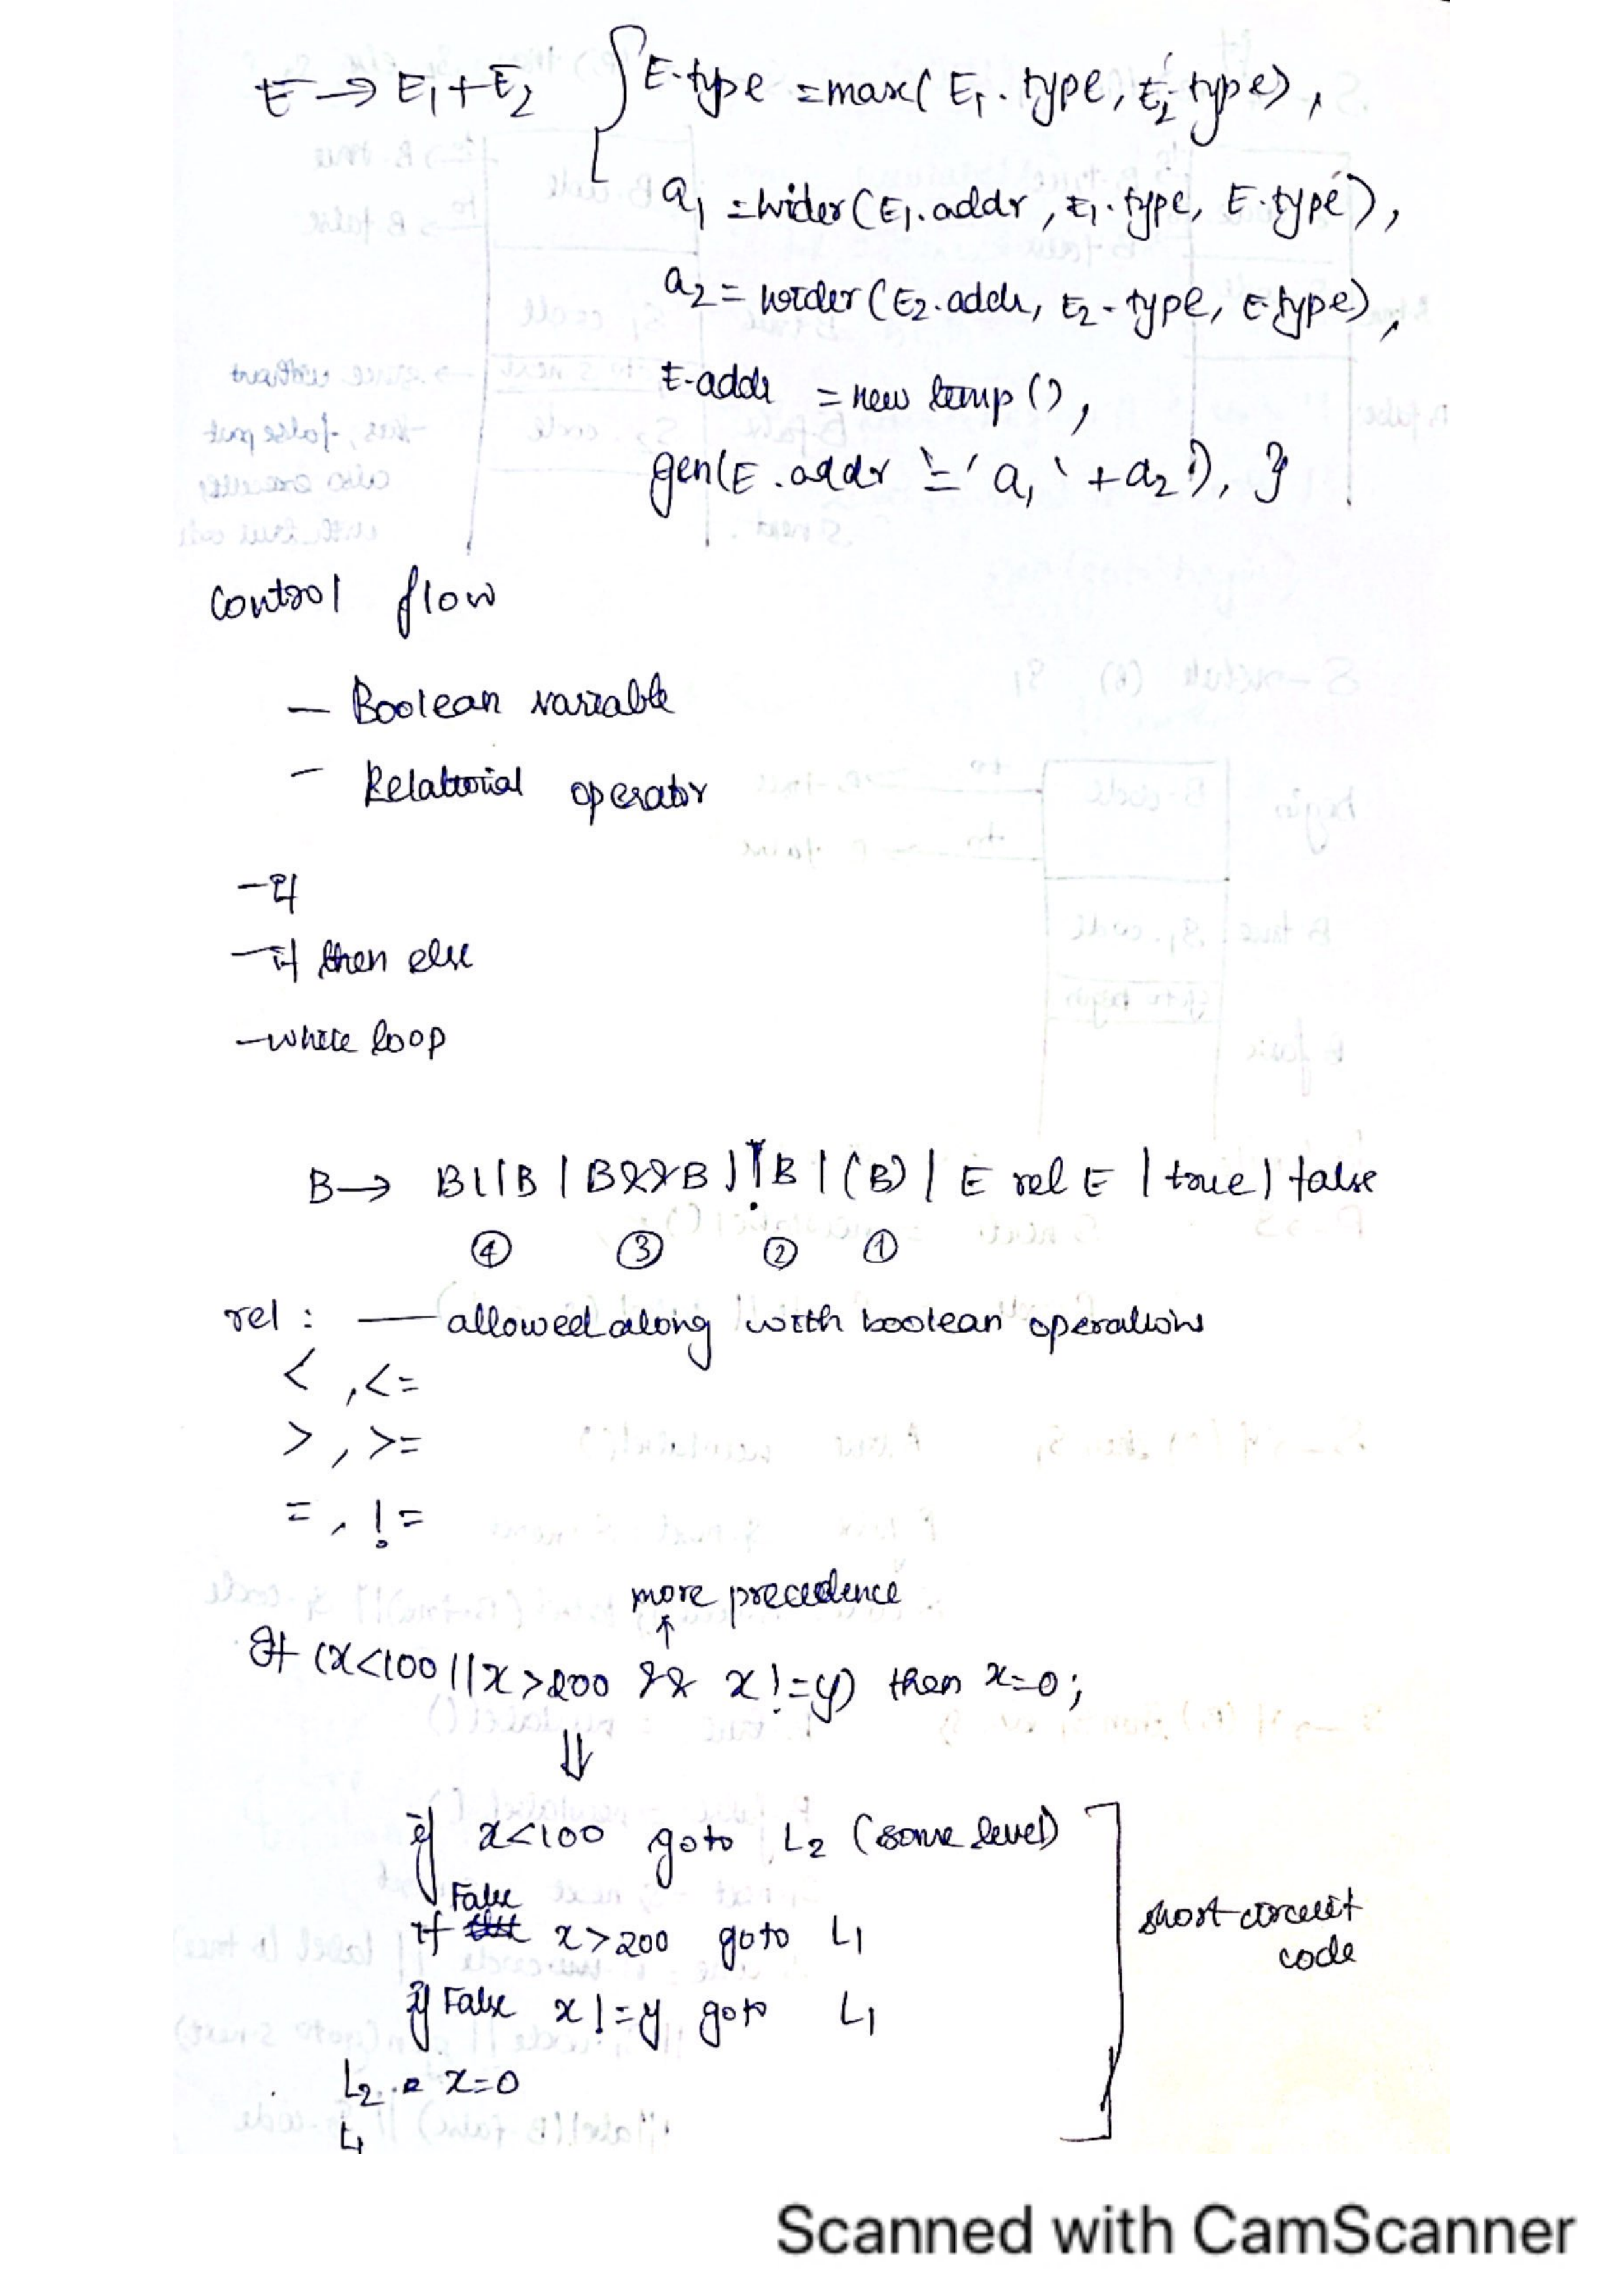 E → E1 + E2 { E.type = max( E1.type, E2.type),
a1 = wider(E1.addr, E1.type, E.type),
a2 = wider(E2.addr, E2.type, E.type),
E.addr = new temp(),
gen(E.addr '=' a1 '+ a2'), }
control flow
— Boolean variable
— Relational operator
- if
- if then else
- while loop
B → B||B | B&&B | !B | (B) | E rel E | true | false
④ ③ ② ①
rel : — allowed along with boolean operations
< , <=
> , >=
= , !=
more precedence
↑
If (x<100 || x>200 && x!=y) then x=0;
⇓
if x<100 goto L2 (some level)
if False x>200 goto L1
if False x!=y goto L1
short-circuit
code
L2 : x=0
L1
Scanned with CamScanner